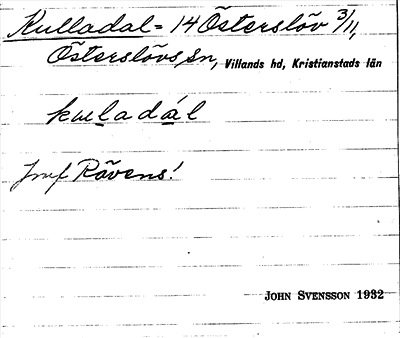 Kulladal = 14 Österslöv 3/11,
Österslövs sn, Villands hd, Kristianstads län
kuladál
Jmf Rävens!
JOHN SVENSSON 1932